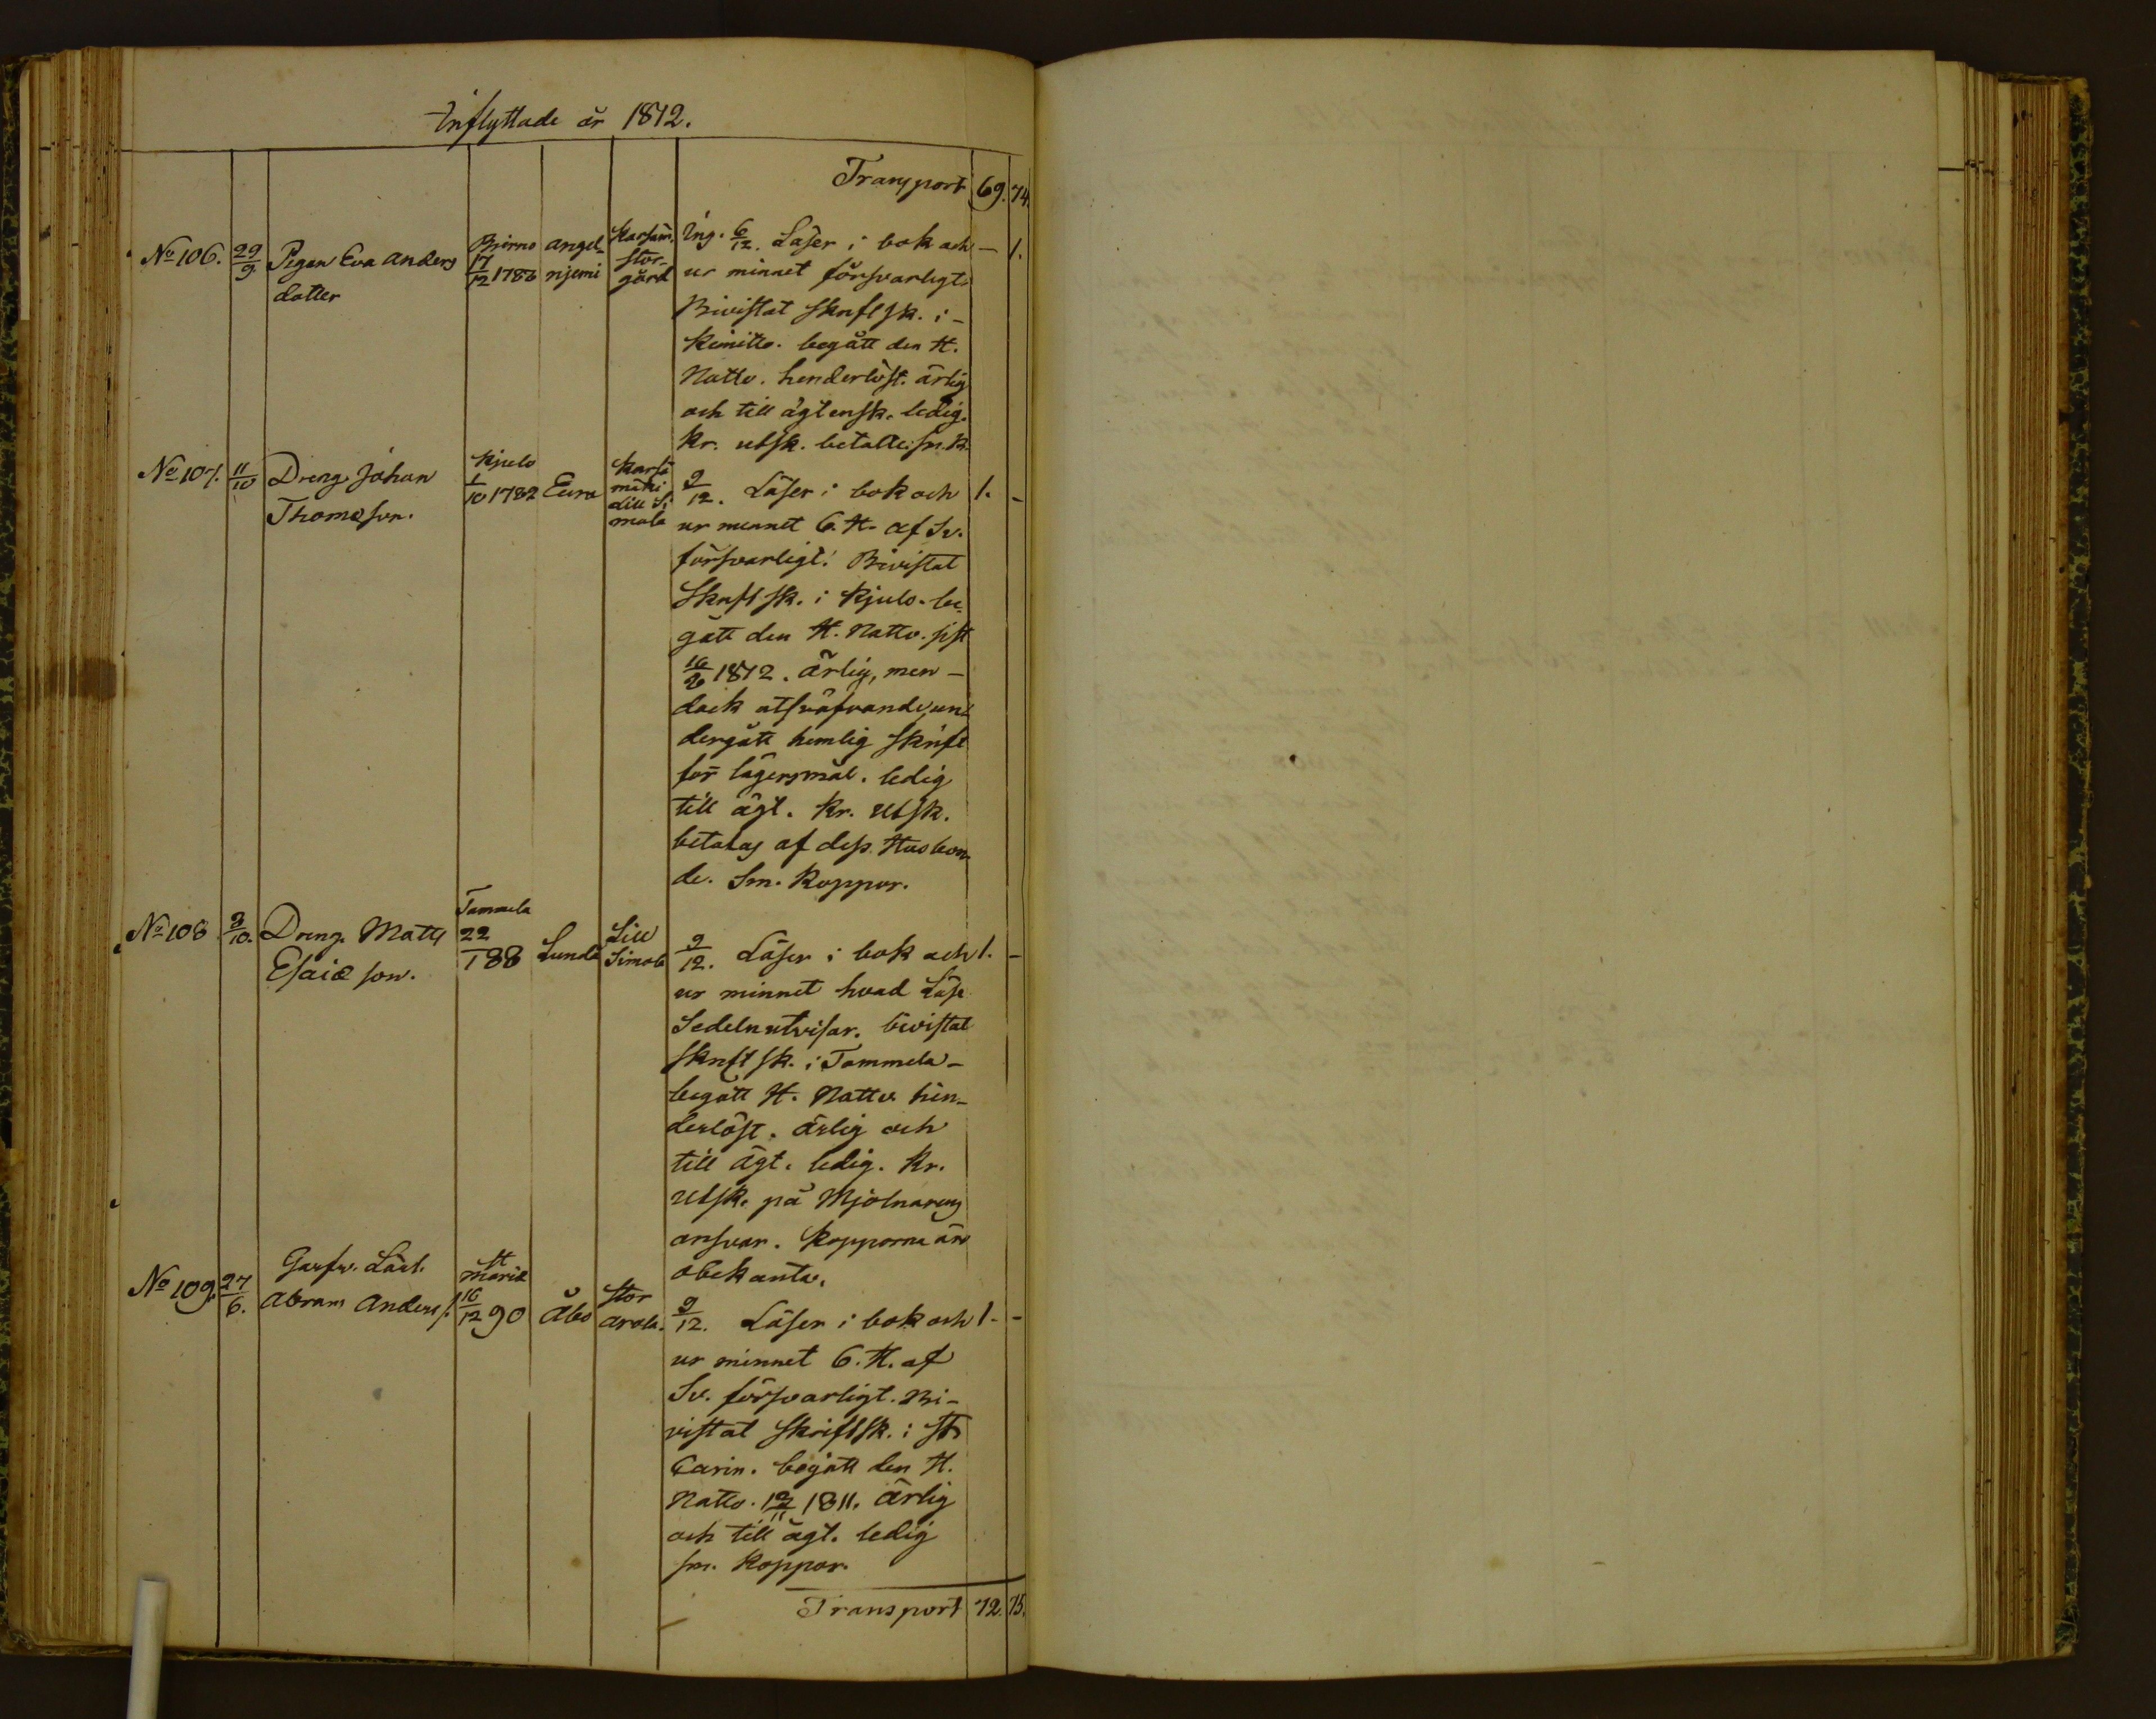 Inflyttade år 1812.
Transport 69. 74.
No 106. 29/9 Pigan Eva Anders
dotter
Bjerno
17/12 1786
Angel-
njemi
Karsäm.
Stor-
gård
Ing. 6/12. Läser i bok och — 1.
ur minnet försvarligt.
Bivistat Skriftsk. i
Kimitto. begått den H.
Nattv. henderlöst. ärlig
och till ägtensk. ledig.
Kr. utsk. betalte. sm. k.
No 107. 11/10 Dreng. Johan
Thomæ son.
Kjulo
1/10 1782
Eura
Karsä
mäki
dill Si
mala
9/12. Läser i bok och 1. -
ur minnet 6. H. af Sv.
försvarligt. Bivistat
Skriftsk. i Kjulo. be-
gått den H. Nattv. sist
16/2 1812. ärlig, men
dock utsväfvande, un-
dergått hemlig skrift
för lägersmål. ledig
till ägt. Kr. Utsk.
betalas af dess Husbon-
de. Sm. Koppor.
No 108 3/10. Dreng. Matts
Esaiæ son.
Tammela
22/1 88
Lundo
Lill
Simola
9/12. Läser i bok och 1. -
ur minnet hvad Läse
Sedeln utvisar. bivistat
skriftsk. i Tammela
begått H. Nattv. hin-
derlöst. ärlig och
till ägt. ledig. Kr.
Utsk. på Mjölnarens
ansvar. Kopporne äro
obekanta.
No 109. 27/6. Garfv. Lärl.
Abram Anders s.
St
Mariæ
16/12 90
Åbo
Stor
Arola.
9/12. Läser i bok och 1. -
ur minnet 6. H. af
Sv. försvarligt. Bi-
vistat Skriftsk. i St
Carin. begått den H.
Nattv. 12/11 1811. ärlig
och till ägt. ledig
sm. Koppor.
Transport 72. 75.